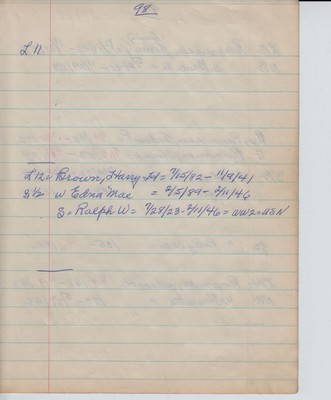 98
L 11
L 12 = Brown, Harry = 7/15/82 - 11/9/41
S 1/2 w Edna Mae = 2/5/89 - 2/11/46
s = Ralph W = 7/28/23 - 2/11/46 = WW2 = USN